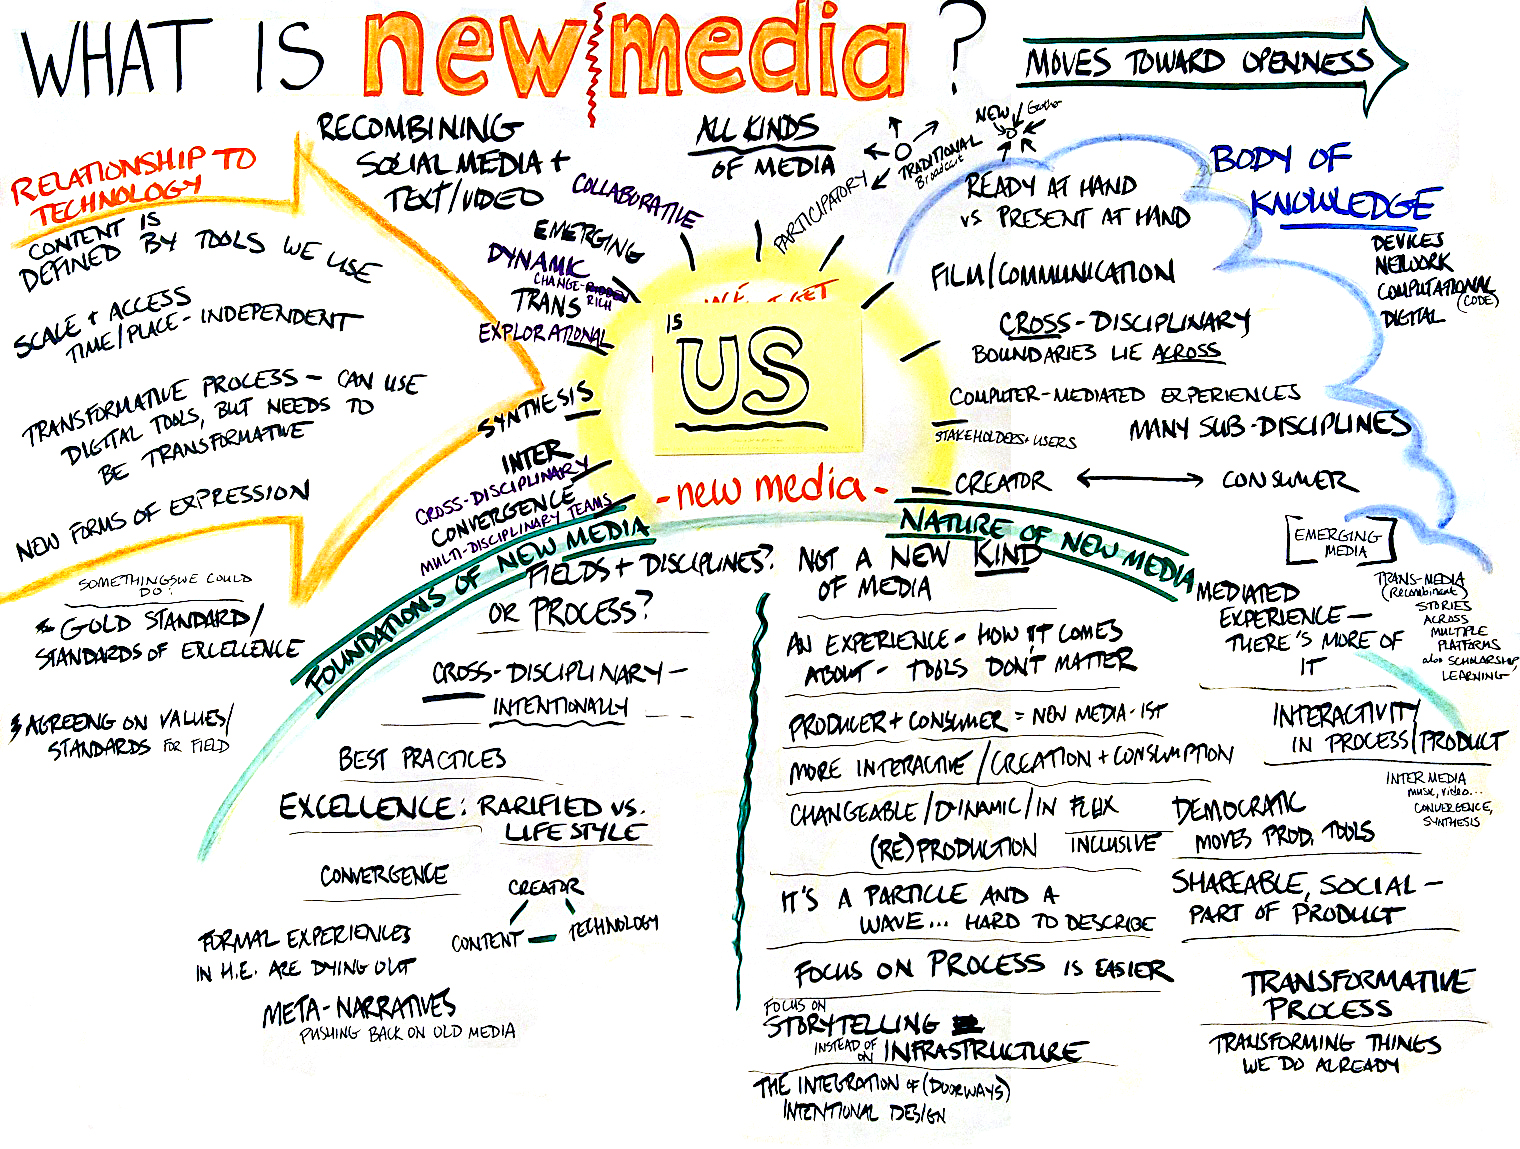 WHAT IS new media ?
MOVES TOWARD OPENNESS
RELATIONSHIP TO
TECHNOLOGY
CONTENT IS
DEFINED BY TOOLS WE USE
SCALE + ACCESS
TIME/PLACE-INDEPENDENT
TRANSFORMATIVE PROCESS - CAN USE
DIGITAL TOOLS, BUT NEEDS TO
BE TRANSFORMATIVE
NEW FORMS OF EXPRESSION
SOMETHINGS WE COULD
DO:
GOLD STANDARD/
STANDARDS OF EXCELLENCE
AGREEING ON VALUES/
STANDARDS FOR FIELD
RECOMBINING
SOCIAL MEDIA +
TEXT/VIDEO
COLLABORATIVE
EMERGING
DYNAMIC
CHANGE-RIDDEN
RICH
TRANS
EXPLORATIONAL
SYNTHESIS
INTER
CROSS-DISCIPLINARY
CONVERGENCE
MULTI-DISCIPLINARY TEAMS
ALL KINDS
OF MEDIA
PARTICIPATORY
TRADITIONAL
Broadcast
NEW
Gather
IS
US
- new media -
BODY OF
KNOWLEDGE
DEVICES
NETWORK
COMPUTATIONAL
(CODE)
DIGITAL
READY AT HAND
VS PRESENT AT HAND
FILM/COMMUNICATION
CROSS-DISCIPLINARY
BOUNDARIES LIE ACROSS
COMPUTER-MEDIATED EXPERIENCES
STAKEHOLDERS + USERS
MANY SUB-DISCIPLINES
CREATOR
CONSUMER
EMERGING
MEDIA
TRANS-MEDIA
(Recombinent)
STORIES
ACROSS
MULTIPLE
PLATFORMS
also SCHOLARSHIP,
LEARNING
FOUNDATIONS OF NEW MEDIA
FIELDS + DISCIPLINES?
OR PROCESS?
CROSS-DISCIPLINARY -
INTENTIONALLY
BEST PRACTICES
EXCELLENCE: RARIFIED VS.
LIFESTYLE
CONVERGENCE
CREATOR
CONTENT
TECHNOLOGY
FORMAL EXPERIENCES
IN H.E. ARE DYING OUT
META-NARRATIVES
PUSHING BACK ON OLD MEDIA
NATURE OF NEW MEDIA
NOT A NEW KIND
OF MEDIA
AN EXPERIENCE - HOW IT COMES
ABOUT - TOOLS DON'T MATTER
PRODUCER + CONSUMER = NEW MEDIA-IST
MORE INTERACTIVE/CREATION + CONSUMPTION
CHANGEABLE/DYNAMIC/IN FLUX
(RE)PRODUCTION
INCLUSIVE
IT'S A PARTICLE AND A
WAVE... HARD TO DESCRIBE
FOCUS ON PROCESS IS EASIER
FOCUS ON
STORYTELLING
INSTEAD OF
ON INFRASTRUCTURE
THE INTEGRATION OF (DOORWAYS)
INTENTIONAL DESIGN
MEDIATED
EXPERIENCE -
THERE'S MORE OF
IT
INTERACTIVITY
IN PROCESS/PRODUCT
INTERMEDIA
music, video...
CONVERGENCE,
SYNTHESIS
DEMOCRATIC
MOVES PROD. TOOLS
SHAREABLE, SOCIAL -
PART OF PRODUCT
TRANSFORMATIVE
PROCESS
TRANSFORMING THINGS
WE DO ALREADY